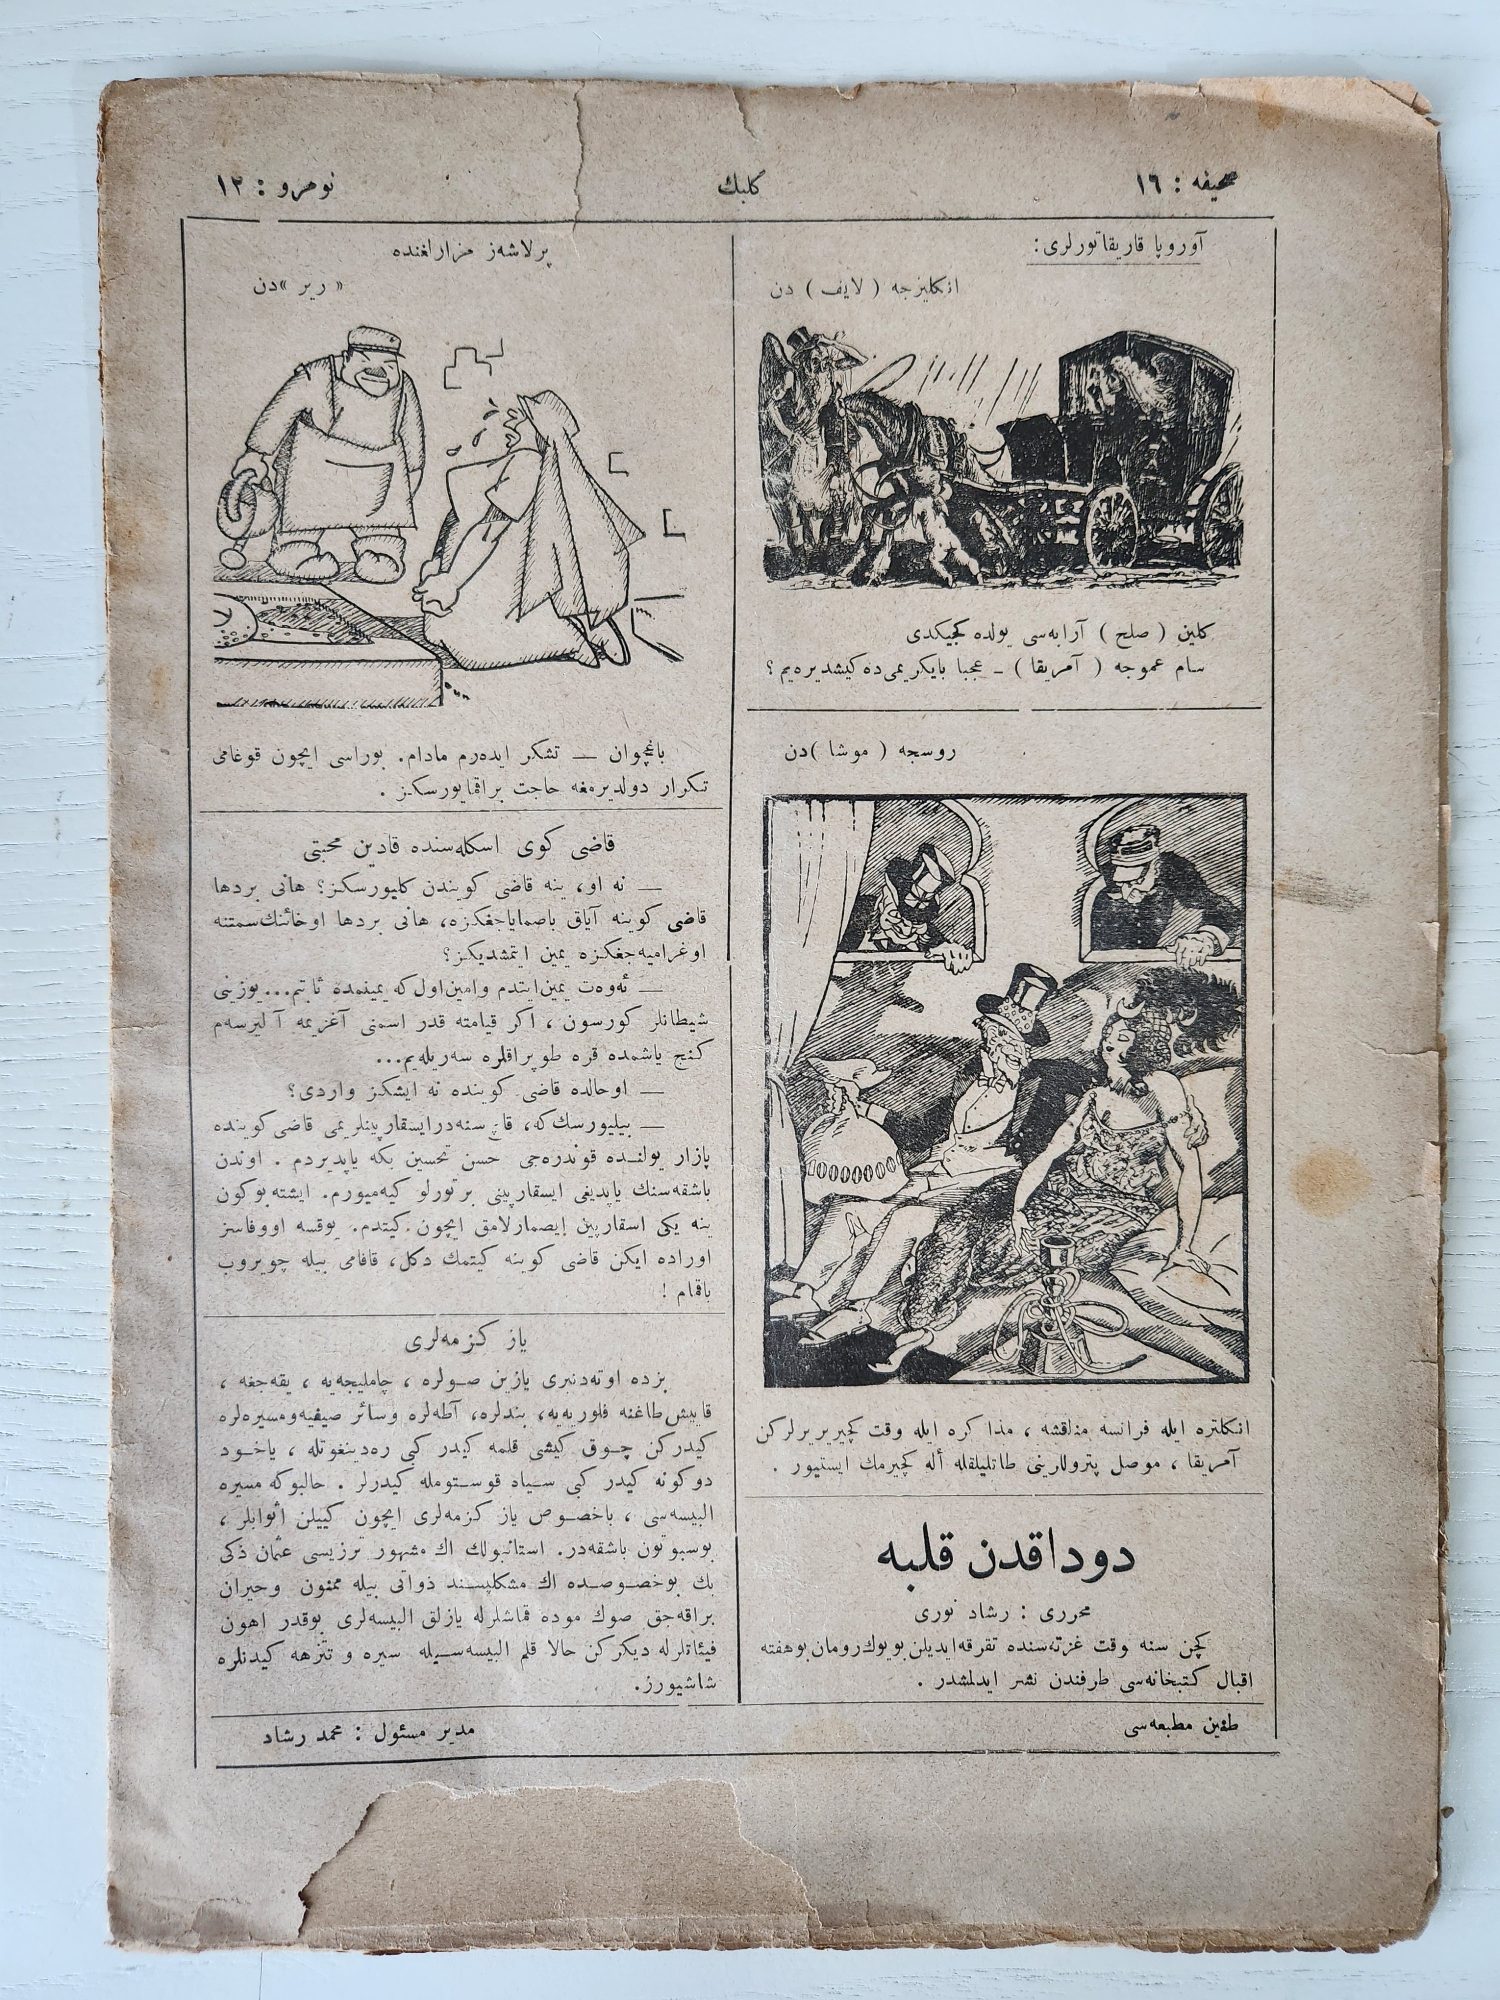 صحیفه : ١٦
كلبك
نومرو : ١٢
آوروپا قاریقاتورلری :
انكلیزجه ( لایف ) دن
كلین ( صلح ) آرابه‌سی یولده كجیكدی
سام عموجه ( آمریقا ) ـ عجبا بایكریمی‌ده كیشدیره‌یم ؟
روسجه ( موشا ) دن
انكلتره ایله فرانسه مناقشه ، مذا كره ایله وقت كچیریرلركن
آمریقا ، موصل پترولارینی طاتلیلقله أله كچیرمك ایستیور .
دوداقدن قلبه
محرری : رشاد نوری
كچن سنه وقت غزته‌سنده تفرقه‌ ایدیلن بو بیوك رومان بو هفته
اقبال كتبخانه‌سی طرفندن نشر ایدلمشدر .
پرلاشه‌ز مزارلغنده
« ریر » دن
باغچوان — تشكر ایده‌رم مادام. بوراسی ایچون قوغامی
تكرار دولدیرمغه حاجت براقمایورسكز .
قاضی كوی اسكله‌سنده قادین محبتی
— نه او، ینه قاضی كویندن كلیورسكز؟ هانی بردها
قاضی كوینه آیاق باصمایاجغكزه، هانی بردها اوخائنك سمتنه
اوغرامیه‌جغكزه یمین ایتمشدیكز؟
— ئه‌وه‌ت یمین ایتدم وامین اول كه یمینمده ثابتم... یوزینی
شیطانلر كورسون ، اكر قیامته قدر اسمنی آغزیمه آلیرسه‌م
كنج یاشمده قره طوپراقلره سه‌ریله‌یم...
— اوحالده قاضی كوینده نه ایشكز واردی؟
— بیلیورسك كه، قاچ سنه‌در ایسقارپینلریمی قاضی كوینده
پازار یولنده قوندره‌جی حسن تحسین بكه یاپدیردم . اوندن
باشقه‌سنك یاپدیغی ایسقارپینی برتورلو كیه‌میورم. ایشته بوكون
ینه یكی اسقارپین ایصمارلامق ایچون كیتدم. یوقسه اووفاسز
اوراده ایكن قاضی كوینه كیتمك دكل، قافامی بیله چویروب
باقمام !
یاز كزمه‌لری
بزده اوته‌دنبری یازین صولره ، چاملیجه‌یه ، یقه‌جغه ،
قاییش طاغنه فلوریه‌یه، بندلره، آطه‌لره وسائر صیفیه ومسیره‌لره
كیدركن چوق كیشی قلمه كیدر كبی ره‌دینغوتله ، یاخود
دوكونه كیدر كبی سیاه قوستومله كیدرلر . حالبوكه مسیره
البیسه‌سی ، باخصوص یاز كزمه‌لری ایچون كییلن أثوابلر ،
بوسبوتون باشقه‌در. استانبولك اك مشهور ترزیسی عثمان ذكی
بك بوخصوصده اك مشكلپسند ذواتی بیله ممنون وحیران
براقه‌جق صوك موده قماشلرله یازلق البیسه‌لری بوقدر اهون
فیئاتلرله دیكركن حالا قلم البیسه‌سیله سیره و تنزهه كیدنلره
شاشیورز.
طنین مطبعه‌سی
مدیر مسئول : محمد رشاد